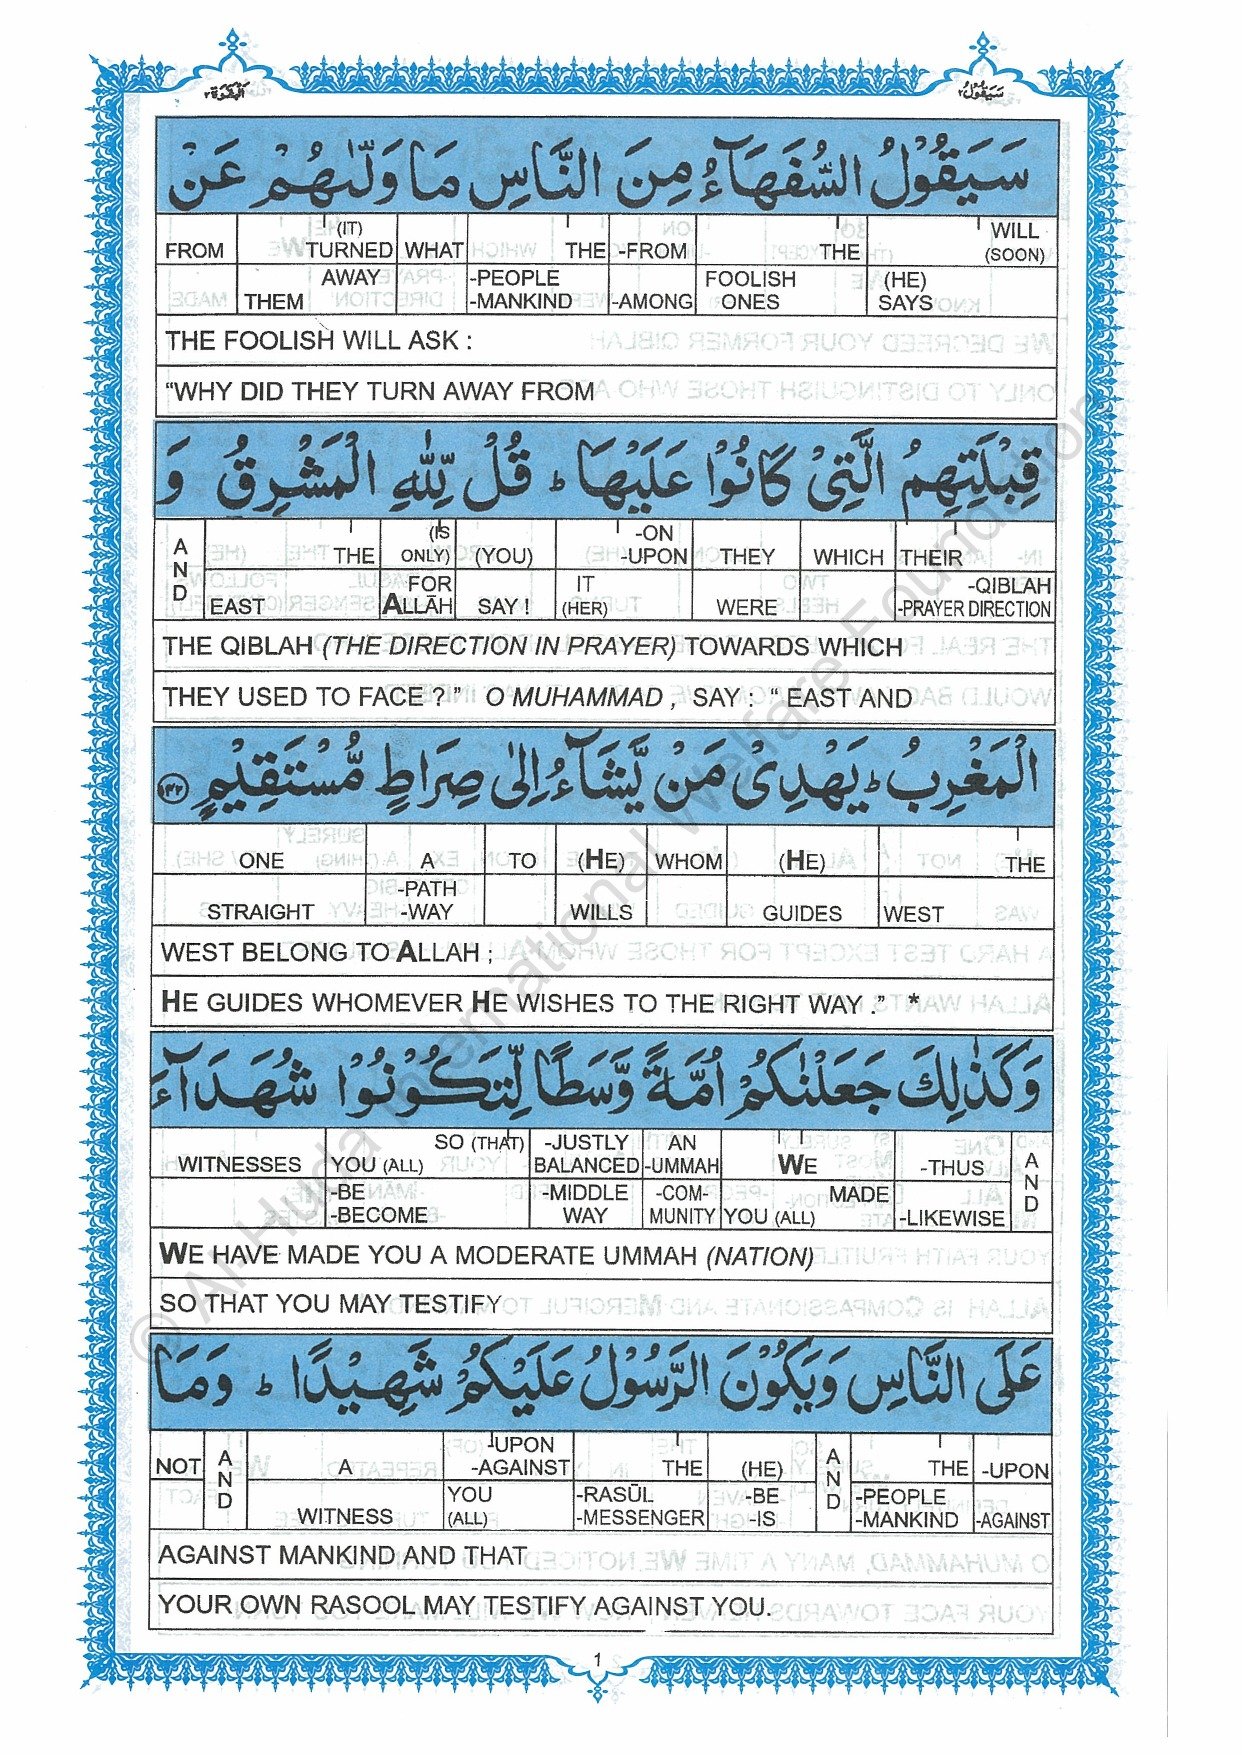 البقرة ٢
سيقول ٢
سَيَقُوْلُ السُّفَهَآءُ مِنَ النَّاسِ مَا وَلّٰىهُمْ عَنْ
FROM (IT) TURNED WHAT THE -FROM THE WILL (SOON)
THEM AWAY -PEOPLE -MANKIND -AMONG FOOLISH ONES (HE) SAYS
THE FOOLISH WILL ASK :
“WHY DID THEY TURN AWAY FROM
قِبْلَتِهِمُ الَّتِىْ كَانُوْا عَلَيْهَا ؕ قُلْ لِّلّٰهِ الْمَشْرِقُ وَ
AND THE (IS ONLY) (YOU) -ON -UPON THEY WHICH THEIR
EAST FOR ALLĀH SAY ! IT (HER) WERE -QIBLAH -PRAYER DIRECTION
THE QIBLAH (THE DIRECTION IN PRAYER) TOWARDS WHICH
THEY USED TO FACE ? ” O MUHAMMAD , SAY : “ EAST AND
الْمَغْرِبُ ؕ يَهْدِىْ مَنْ يَّشَآءُ اِلٰى صِرَاطٍ مُّسْتَقِيْمٍ ١٤٢
ONE A TO (HE) WHOM (HE) THE
STRAIGHT -PATH -WAY WILLS GUIDES WEST
WEST BELONG TO ALLAH ;
HE GUIDES WHOMEVER HE WISHES TO THE RIGHT WAY .” *
وَكَذٰلِكَ جَعَلْنٰكُمْ اُمَّةً وَّسَطًا لِّتَكُوْنُوْا شُهَدَآءَ
WITNESSES SO (THAT) YOU (ALL) -JUSTLY BALANCED AN -UMMAH WE -THUS AND
-BE -BECOME -MIDDLE WAY -COM- MUNITY YOU (ALL) MADE -LIKEWISE
WE HAVE MADE YOU A MODERATE UMMAH (NATION)
SO THAT YOU MAY TESTIFY
عَلَى النَّاسِ وَيَكُوْنَ الرَّسُوْلُ عَلَيْكُمْ شَهِيْدًا ؕ وَمَا
NOT AND A -UPON -AGAINST THE (HE) AND THE -UPON
WITNESS YOU (ALL) -RASŪL -MESSENGER -BE -IS -PEOPLE -MANKIND -AGAINST
AGAINST MANKIND AND THAT
YOUR OWN RASOOL MAY TESTIFY AGAINST YOU.
1
© Al-Huda International Welfare Foundation